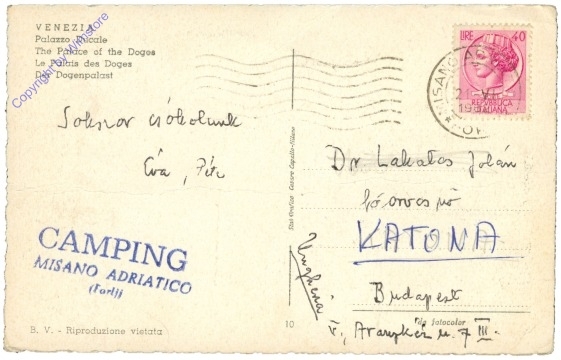 VENEZIA
Palazzo Ducale
The Palace of the Doges
Le Palais des Doges
Der Dogenpalast
Copyright by Wihlstore
LIRE 40
REPVBBLICA
ITALIANA
Sokszor csókolunk
Éva, Feri
Dr Lakatos Jolán
főorvosnő
KATONA
Budapest
V., Aranykéz u. 7 III.
Ungheria
CAMPING
MISANO ADRIATICO
(Forlì)
Dist. Cesare Capello - Milano
B. V. - Riproduzione vietata
10
fotocolor